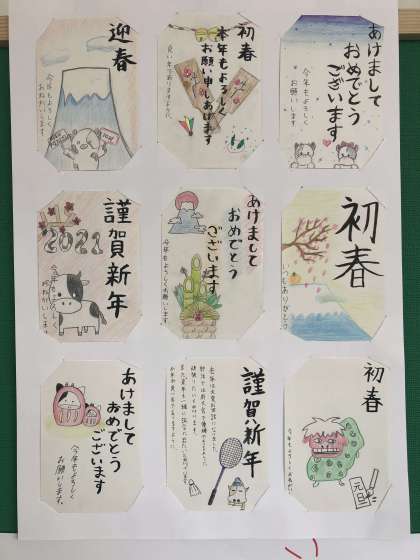 迎春
今年もよろしく
おねがいします。
初春
本年もよろしく
お願い申しあげます
良い年でありますように
あけまして
おめでとう
ございます
今年もよろしく
お願いします。
謹賀新年
2021
今年もよろしく
お願いします
あけまして
おめでとう
ございます
今年もよろしくお願いします
初春
いつもありがとう
あけまして
おめでとう
ございます
今年もよろしく
お願いします。
謹賀新年
初春
今年もよろしくおねがい
元旦